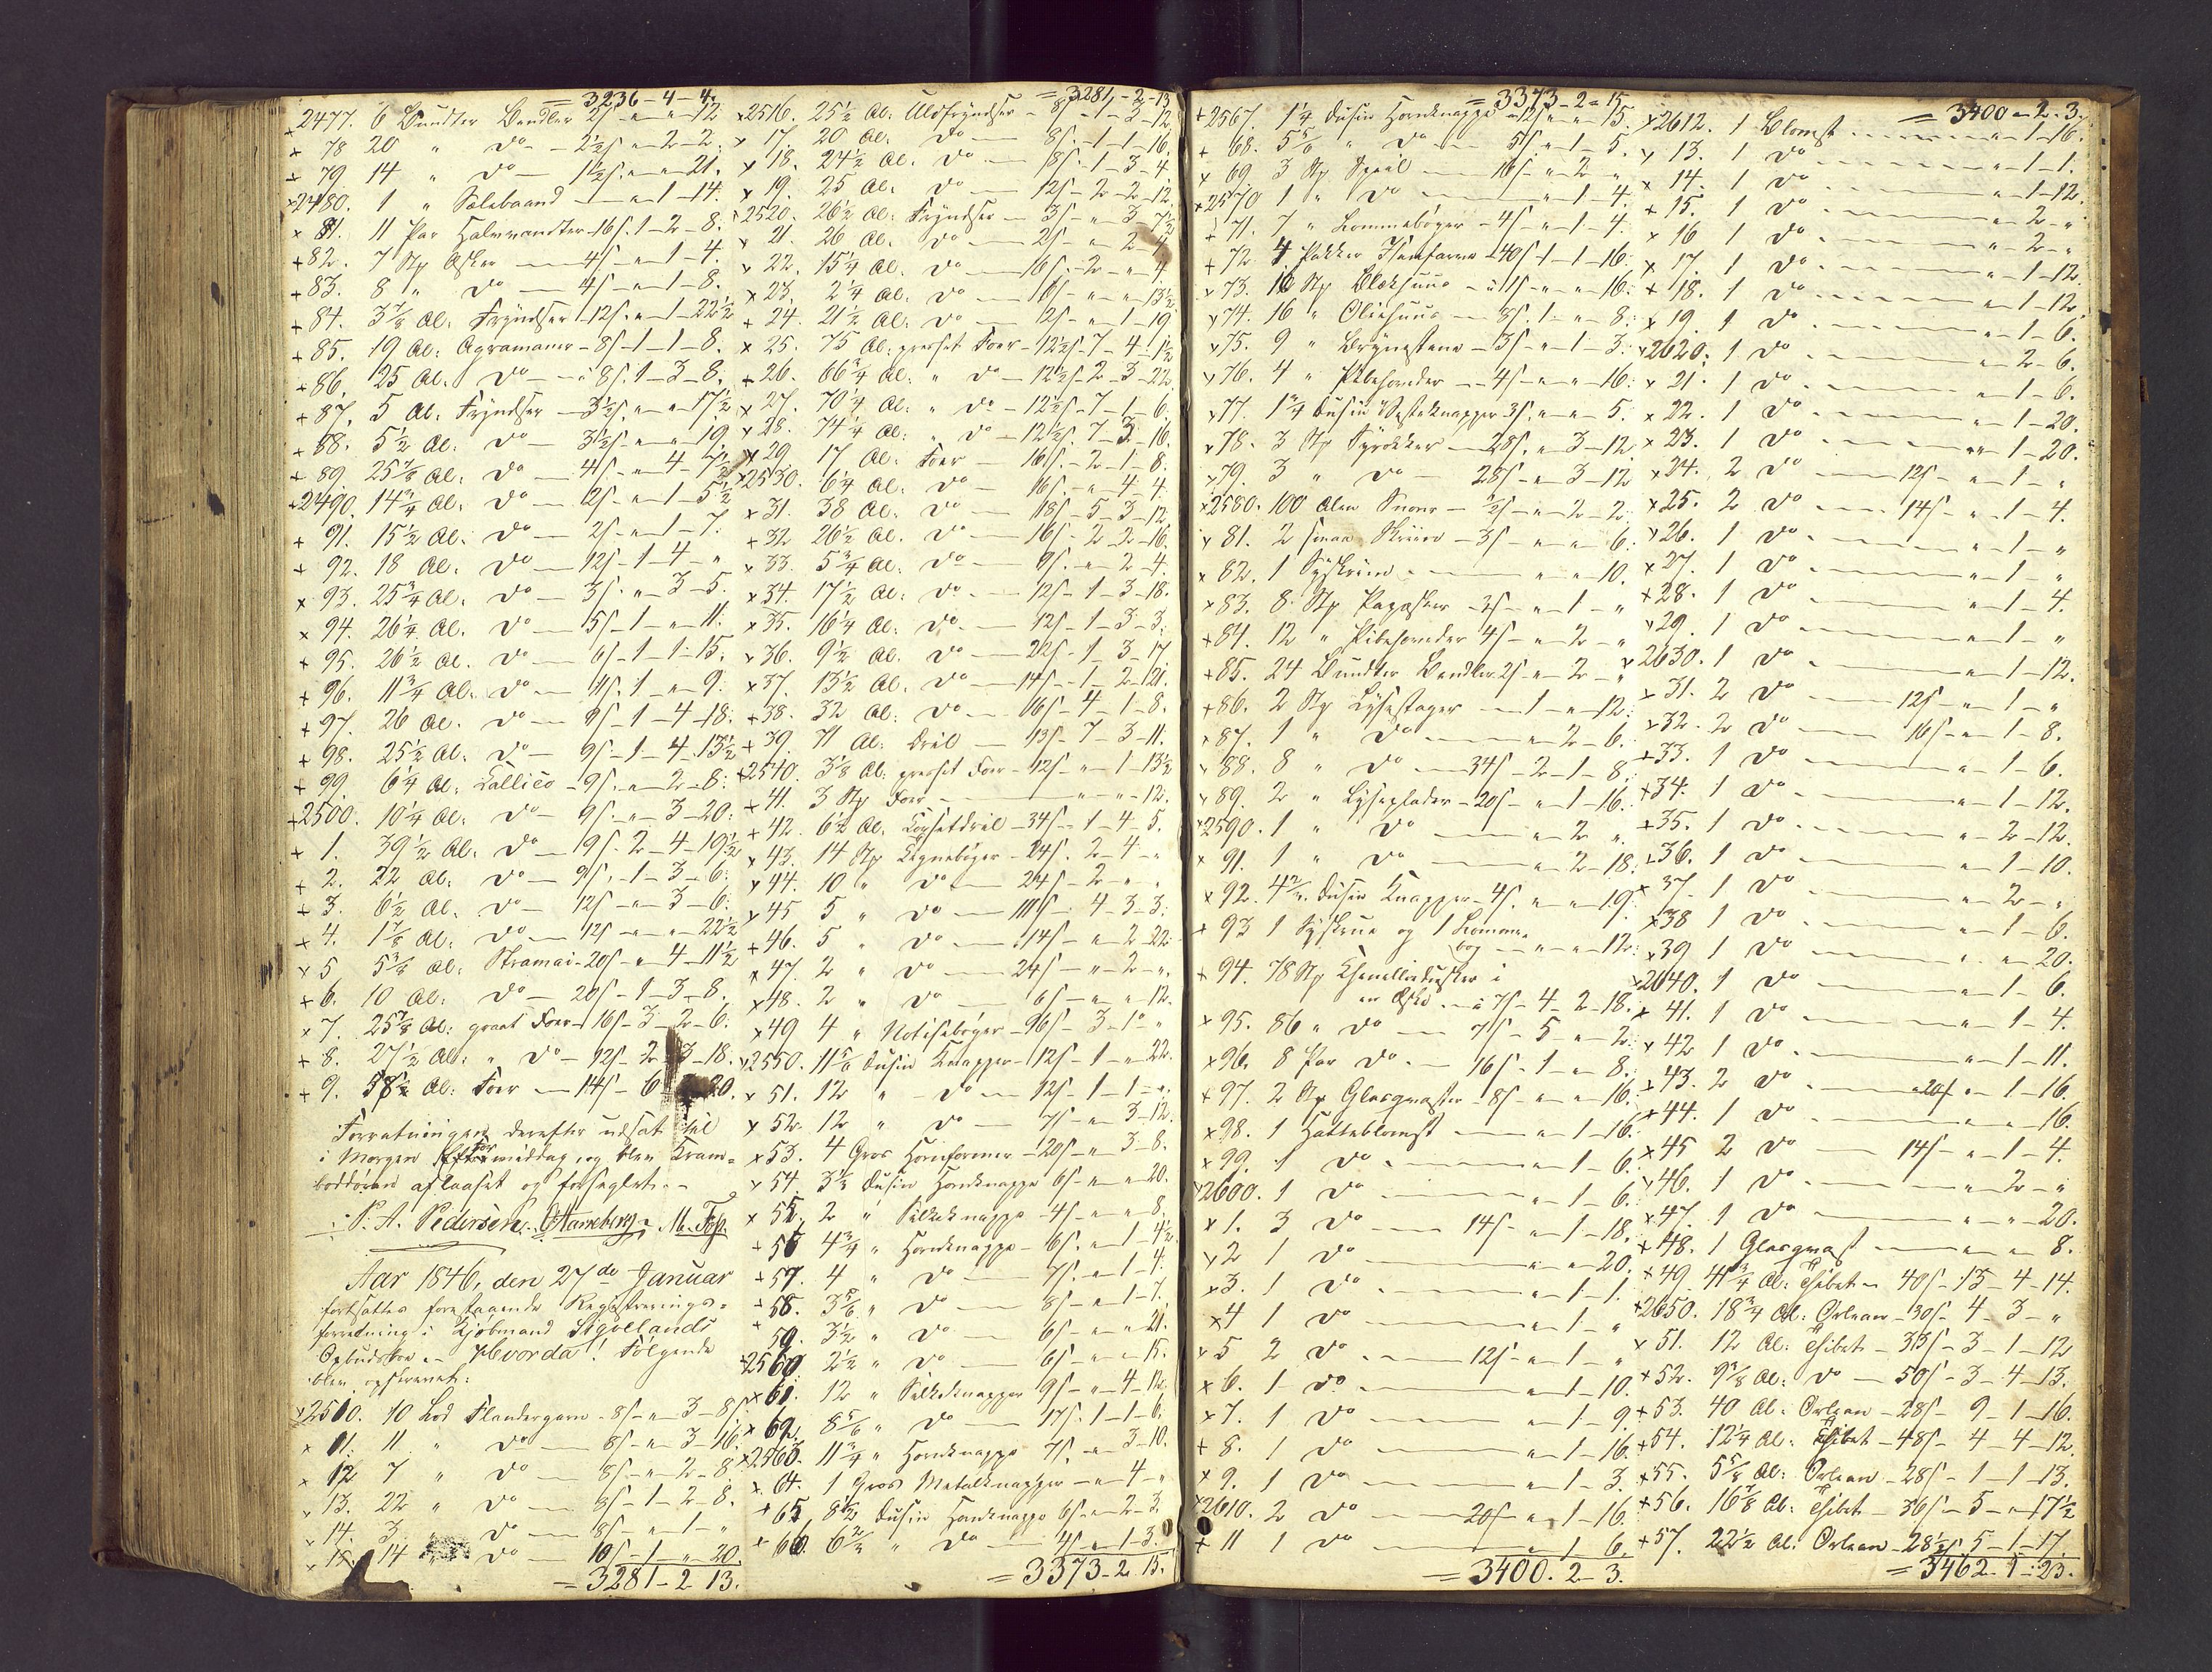 = 3236 - 4 - 4.
2477. 6 Bundter Bendler 2ſ - " - " - 12
+ 78 20 " Do - 2½ſ - " - 2 - 2.
+ 79 14 " Do - 1½ſ - " - " - 21.
+2480. 1 " Sælebaand - " - 1 - 14.
× 81. 11 Par Halvvandter - 16ſ. 1 - 2 - 8.
+ 82. 7 Stp Æsker - 4ſ - " - 1 - 4.
+ 83. 8 " Do - 4ſ - " - 1 - 8.
+ 84. 3⅞ Al: Fryndser - 12ſ. " - 1 - 22½
+ 85. 19 Al: Agramaner - 8ſ - 1 - 1 - 8.
+ 86. 25 Al: Do - " 8ſ. 1 - 3 - 8.
+ 87. 5 Al. Fryndser - 3½ſ. " - " - 17½
+ 88. 5½ Al: Do - 3½ſ - " - " - 19.
+ 89. 25⅞ Al: Do - 4ſ - " - 4 - 7½
+2490. 14¾ Al: Do - 2ſ - " - 1 - 5½
+ 91. 15½ Al: Do - 2ſ - " - 1 - 7.
+ 92. 18 Al. Do - 12ſ - 1 - 4 - "
× 93. 25¾ Al. Do - 3ſ. " - 3 - 5.
× 94. 26¼ Al. Do - 5ſ - 1 - " - 11.
+ 95. 26½ Al. Do - 6ſ - 1 - 1 - 15.
+ 96. 11¾ Al. Do - 11ſ. 1 - " - 9.
+ 97. 26 Al. Do - 9ſ - 1 - 4 - 18.
+ 98. 25½ Al. Do - 9ſ - 1 - 4 - 13½
+ 99. 6¼ Al. Callico - 9ſ. - " - 2 - 8.
+2500. 10¼ Al: Do - 9ſ. - " - 3 - 20.
+ 1. 39½ Al. Do - 9ſ. 2 - 4 - 19½
+ 2. 22 Al: Do - 9ſ. - 1 - 3 - 6.
+ 3. 6½ Al. Do - 12ſ - " - 3 - 6.
× 4. 1⅞ Al: Do - 12ſ - " - " - 22½
× 5 5⅜ Al: Stramai - 20ſ - " - 4 - 11½
+ 6. 10 Al: Do - 20ſ - 1 - 3 - 8.
× 7. 25⅞ Al: graat Foer - 16ſ - 3 - 2 - 6.
+ 8. 27½ Al: " Do - 12ſ - 2 - 3 - 18.
+ 9. 58½ Al: Foer - 14ſ - 6 20.
Forretningen derefter udsat til
i Morgen Formiddag, og blev Kram-
boddøren aflaaset og forseglet. -
P. A. Pedersen. M. Foss.
Aar 1846, den 27de Januar
fortsattes forestaaende Registrerings-
forretning i Kjøbmand Sigvelands
Opbudsboe - Hvorda! Følgende
blev opskrevet:
×2510. 10 Lod Flandergarn - 8ſ - " - 3 - 8
× 11. 11 " Do - 8ſ - " - 3 - 16.
× 12 7 " Do - 8ſ - " - 2 - 8.
× 13. 22 " Do - 8ſ - 1 - 2 - 8.
× 14. 3 " Do - 8ſ - " - 1 - "
× 15. 14 " Do - 10ſ - 1 - " - 20.
= 3281 - 2 13.
= 3281 - 2 - 13
×2516. 25½ Al: Uldfryndser - 8ſ - 1 - 3 - 12
× 17. 20 Al. Do - 8ſ. - 1 - 1 - 16.
× 18. 24½ Al. Do - 8ſ. 1 - 3 - 4.
× 19. 25 Al. Do - 12ſ - 2 - 2 - 12.
+2520. 26½ Al: Fryndser - 3ſ - " - 3 - 7½
× 21. 26 Al. Do - 2ſ - " - 2 - 4.
× 22. 15¼ Al. Do - 16ſ. - 2 - " - 4
× 23. 2¼ Al: Do - 6ſ - " - " - 13½
+ 24. 21½ Al: Do - 2ſ - " - 1 - 19
× 25. 75 Al: presset Foer - 12½ſ - 7 - 4 - 1½
+ 26. 66¾ Al: " Do - 12½ſ - 2 - 3 - 22
× 27. 70¼ Al: " Do - 12½ſ - 7 - 1 - 6.
× 28. 74¼ Al: " Do - 12½ſ. 7 - 3 - 16.
× 29 17 Al: Foer - 16ſ. - 2 - 1 - 8.
×2530. 6¼ Al: Do - 16ſ - " - 4 - 4.
× 31. 38 Al. Do - 18ſ - 5 - 3 - 12
+ 32 26½ Al. Do - 16ſ - 2 - 2 - 16.
× 33. 5¾ Al. Do - 9ſ. - " - 2 - 4.
× 34. 17½ Al: Do - 12ſ - 1 - 3 - 18.
× 35. 16¼ Al: Do - 12ſ - 1 - 3 - 3.
× 36. 9½ Al. Do - 22ſ - 1 - 3 - 17
× 37. 13½ Al. Do - 14ſ - 1 - 2 - 21.
+ 38. 32 Al: Do - 16ſ - 4 - 1 - 8.
+ 39. 71 Al: Dril - 13ſ - 7 - 3 - 11.
+2540. 3⅛ Al: presset Foer - 12ſ - " - 1 - 13½
+ 41. 3 Stp Foer - " - " - 12.
+ 42. 6½ Al. Corsetdril - 34ſ - 1 - 4 - 5.
× 43. 14 Stp Tegnebøger - 24ſ. 2 - 4 - "
× 44. 10 " Do - 24ſ - 2 - " - "
× 45 5 " Do - 111ſ - 4 - 3 - 3.
+ 46. 5 " Do - 14ſ - " - 2 - 22.
× 47. 2 " Do - 24ſ - " - 2 - "
× 48. 2 " Do - 6ſ - " - " - 12.
× 49 4 " Notisebøger - 96ſ - 3 - 1 - "
×2550. 11⅚ Dusin Knapper - 12ſ - 1 - " - 22
× 51. 12 " Do - 12ſ - 1 - 1 - "
× 52. 12 " Do - 7ſ - " - 3 - 12.
× 53. 4 Gros Hornformer - 20ſ - " - 3 - 8.
× 54. 3⅓ Dusin Hornknappe 6ſ - " - " - 20.
× 55. 2 " Silkeknappe - 4ſ - " - " - 8.
+ 56 4¾ " Hornknappe - 6ſ. " - 1 - 4½
+ 57. 4 " Do - 7ſ. - " - 1 - 4.
+ 58. 3⅚ " Do - 8ſ - " - 1 - 7.
+ 59. 3½ " Do - 6ſ - " - " - 21.
×2560 2½ " Do - 6ſ - " - " - 15.
× 61. 12 " Silkeknapper 9ſ - " - 4 - 12
× 62. 8⅚ " Do - 17ſ. 1 - 1 - 6.
×2563. 11¾ " Hornknappe 7ſ. - " - 3 - 10.
× 64. 1 Gros Metalknapper - " - 4 - "
+ 65 8½ Dusin Hornknappe 6ſ - " - 2 - 3
× 66. 6 " Do - 4ſ - " - 1 - 3.
= 3373 - 2. 15.
= 3373 - 2 - 15
+2567. 1¼ Dusin Hornknappe - 12ſ - " - " - 15.
+ 68. 5⅚ " Do - 5ſ - " - 1 - 5.
× 69. 3 Stp Speil - 16ſ - " - 2 - "
×2570 1 " Do - " - 1 - 4.
+ 71. 7 " Lommebøger - 4ſ - " - 1 - 4.
+ 72. 4 Pakker - 40ſ - 1 - 1 - 16.
× 73. 16 Stp Blækhuus - " 1ſ - " - " - 16.
× 74. 16 " Oliehuus - 8ſ. 1 - " - 8.
× 75. 9 " Brynestene - 3ſ - " - 1 - 3.
× 76. 4 " Pibehoveder - 4ſ - " - " - 16.
× 77. 1¾ Dusin Vesteknapper 3ſ. " - " - 5.
× 78. 3 Stp Syrokker - 28ſ. " - 3 - 12
× 79. 3 " Do - 28ſ - " - 3 - 12
×2580. 100 Alen Snore - ½ſ - " - 2 - 2.
× 81. 2 smaa Skriin - 3ſ - " - " - 6.
× 82. 1 Syskrin - " - " - 10.
× 83. 8 Stp Papæsker - 3ſ - " - 1 - "
+ 84. 12 " Pibehoveder 4ſ - " - 2 - "
+ 85. 24 Bundter Bendler 2ſ - " - 2 - "
+ 86. 2 Stp Lysestager - " - 1 - " - 12.
× 87. 1 " Do - " - 2 - 6.
× 88. 8 " Do - 34ſ - 2 - 1 - 8.
× 89. 2 " Lyseplader - 20ſ - " - 1 - 16.
×2590. 1 " Do - " - 2 - "
× 91. 1 " Do - " - 2 - 18.
× 92. 4 Dusin Knapper - 4ſ. - " - " - 19.
+ 93 1 Syskrue og 1 Lomme-
bog - " - " - 12.
+ 94. 78 Stp Chenilledusker i
en Æske - à 7ſ - 4 - 2 - 18.
× 95. 86 " Do - 7ſ - 5 - " - 2.
× 96. 8 Par Do - 16ſ - 1 - " - 8.
+ 97. 2 Stp Glasqvaster - 8ſ - " - " - 16.
× 98. 1 Hatteblomst - " - 1 - 16.
× 99. 1 Do - " - 1 - 6.
×2600. 1 Do - " - 1 - 6.
× 1. 3 Do - 14ſ - " - 1 - 18.
× 2 1 Do - " - " - 20.
× 3. 1 Do - " - 1 - 1.
× 4 1 Do - " - 1 - "
× 5 2 Do - 12ſ - " - 1 - "
× 6. 1 Do - " - 1 - 10.
× 7. 1 Do - " - 1 - 9.
+ 8. 1 Do - " - 1 - 16.
× 9. 1 Do - " - 1 - 3.
×2610. 2 Do - 20ſ - " - 1 - 16.
+ 11 1 Do - " - 1 - 6.
= 3400. 2 - 3.
= 3400 - 2 - 3.
×2612. 1 Blomst - " - 1 - 16.
× 13. 1 Do - " - 1 - 1.
× 14. 1 Do - " - 1 - 12.
+ 15. 1 Do - " - 2 - "
× 16 1 Do - " - 2 - "
× 17. 1 Do - " - 1 - 12
+ 18. 1 Do - " - 1 - 12.
× 19. 1 Do - " - 1 - 6.
×2620. 1 Do - " - 2 - 6.
× 21. 1 Do - " - 1 - 6.
× 22. 1 Do - " - 1 - 20.
× 23. 1 Do - " - 1 - 20.
× 24. 2 Do - 12ſ - " - 1 - "
× 25. 2 Do - 14ſ - " - 1 - 4.
× 26. 1 Do - " - 1 - "
× 27. 1 Do - " - 1 - "
× 28. 1 Do - " - 1 - 4.
× 29. 1 Do - " - 1 - "
×2630. 1 Do - " - 1 - 12.
× 31. 2 Do - 12ſ - " - 1 - "
× 32. 2 Do - 16ſ - " - 1 - 8.
+ 33. 1 Do - " - 1 - 6.
+ 34. 1 Do - " - 1 - 12.
+ 35. 1 Do - " - 2 - 12.
+ 36. 1 Do - " - 1 - 10.
× 37. 1 Do - " - 2 - "
× 38 1 Do - " - 1 - 6.
× 39 1 Do - " - " - 20.
×2640. 1 Do - " - 1 - 6.
× 41. 1 Do - " - 1 - 4.
× 42 1 Do - " - 1 - 11.
+ 43. 2 Do - 20ſ - " - 1 - 16.
× 44. 1 Do - " - " - 16.
× 45 2 Do - 14ſ - " - 1 - 4.
× 46. 1 Do - " - 2 - "
× 47. 1 Do - " - " - 20.
× 48. 1 Glasqvast - " - " - 8.
+ 49. 41¾ Al: Thibet - 40ſ - 13 - 4 - 14.
+2650. 18¾ Al: Orlean - 30ſ - 4 - 3 - "
× 51. 12 Al: Thibet - 33ſ - 3 - 1 - 12
× 52. 9⅜ Al: Do - 50ſ - 3 - 4 - 13.
+ 53. 40 Al: Orlean - 28ſ - 9 - 1 - 16.
+ 54. 12¼ Al: Thibet - 48ſ - 4 - 4 - 12.
+ 55. 5⅝ Al: Orlean - 28ſ - 1 - 1 - 13.
+ 56. 16⅞ Al: Thibet - 36ſ - 5 - " - 17½
+ 57. 22½ Al: Orlean - 28½ſ 5 - 1 - 17.
= 3462 - 1 - 23.